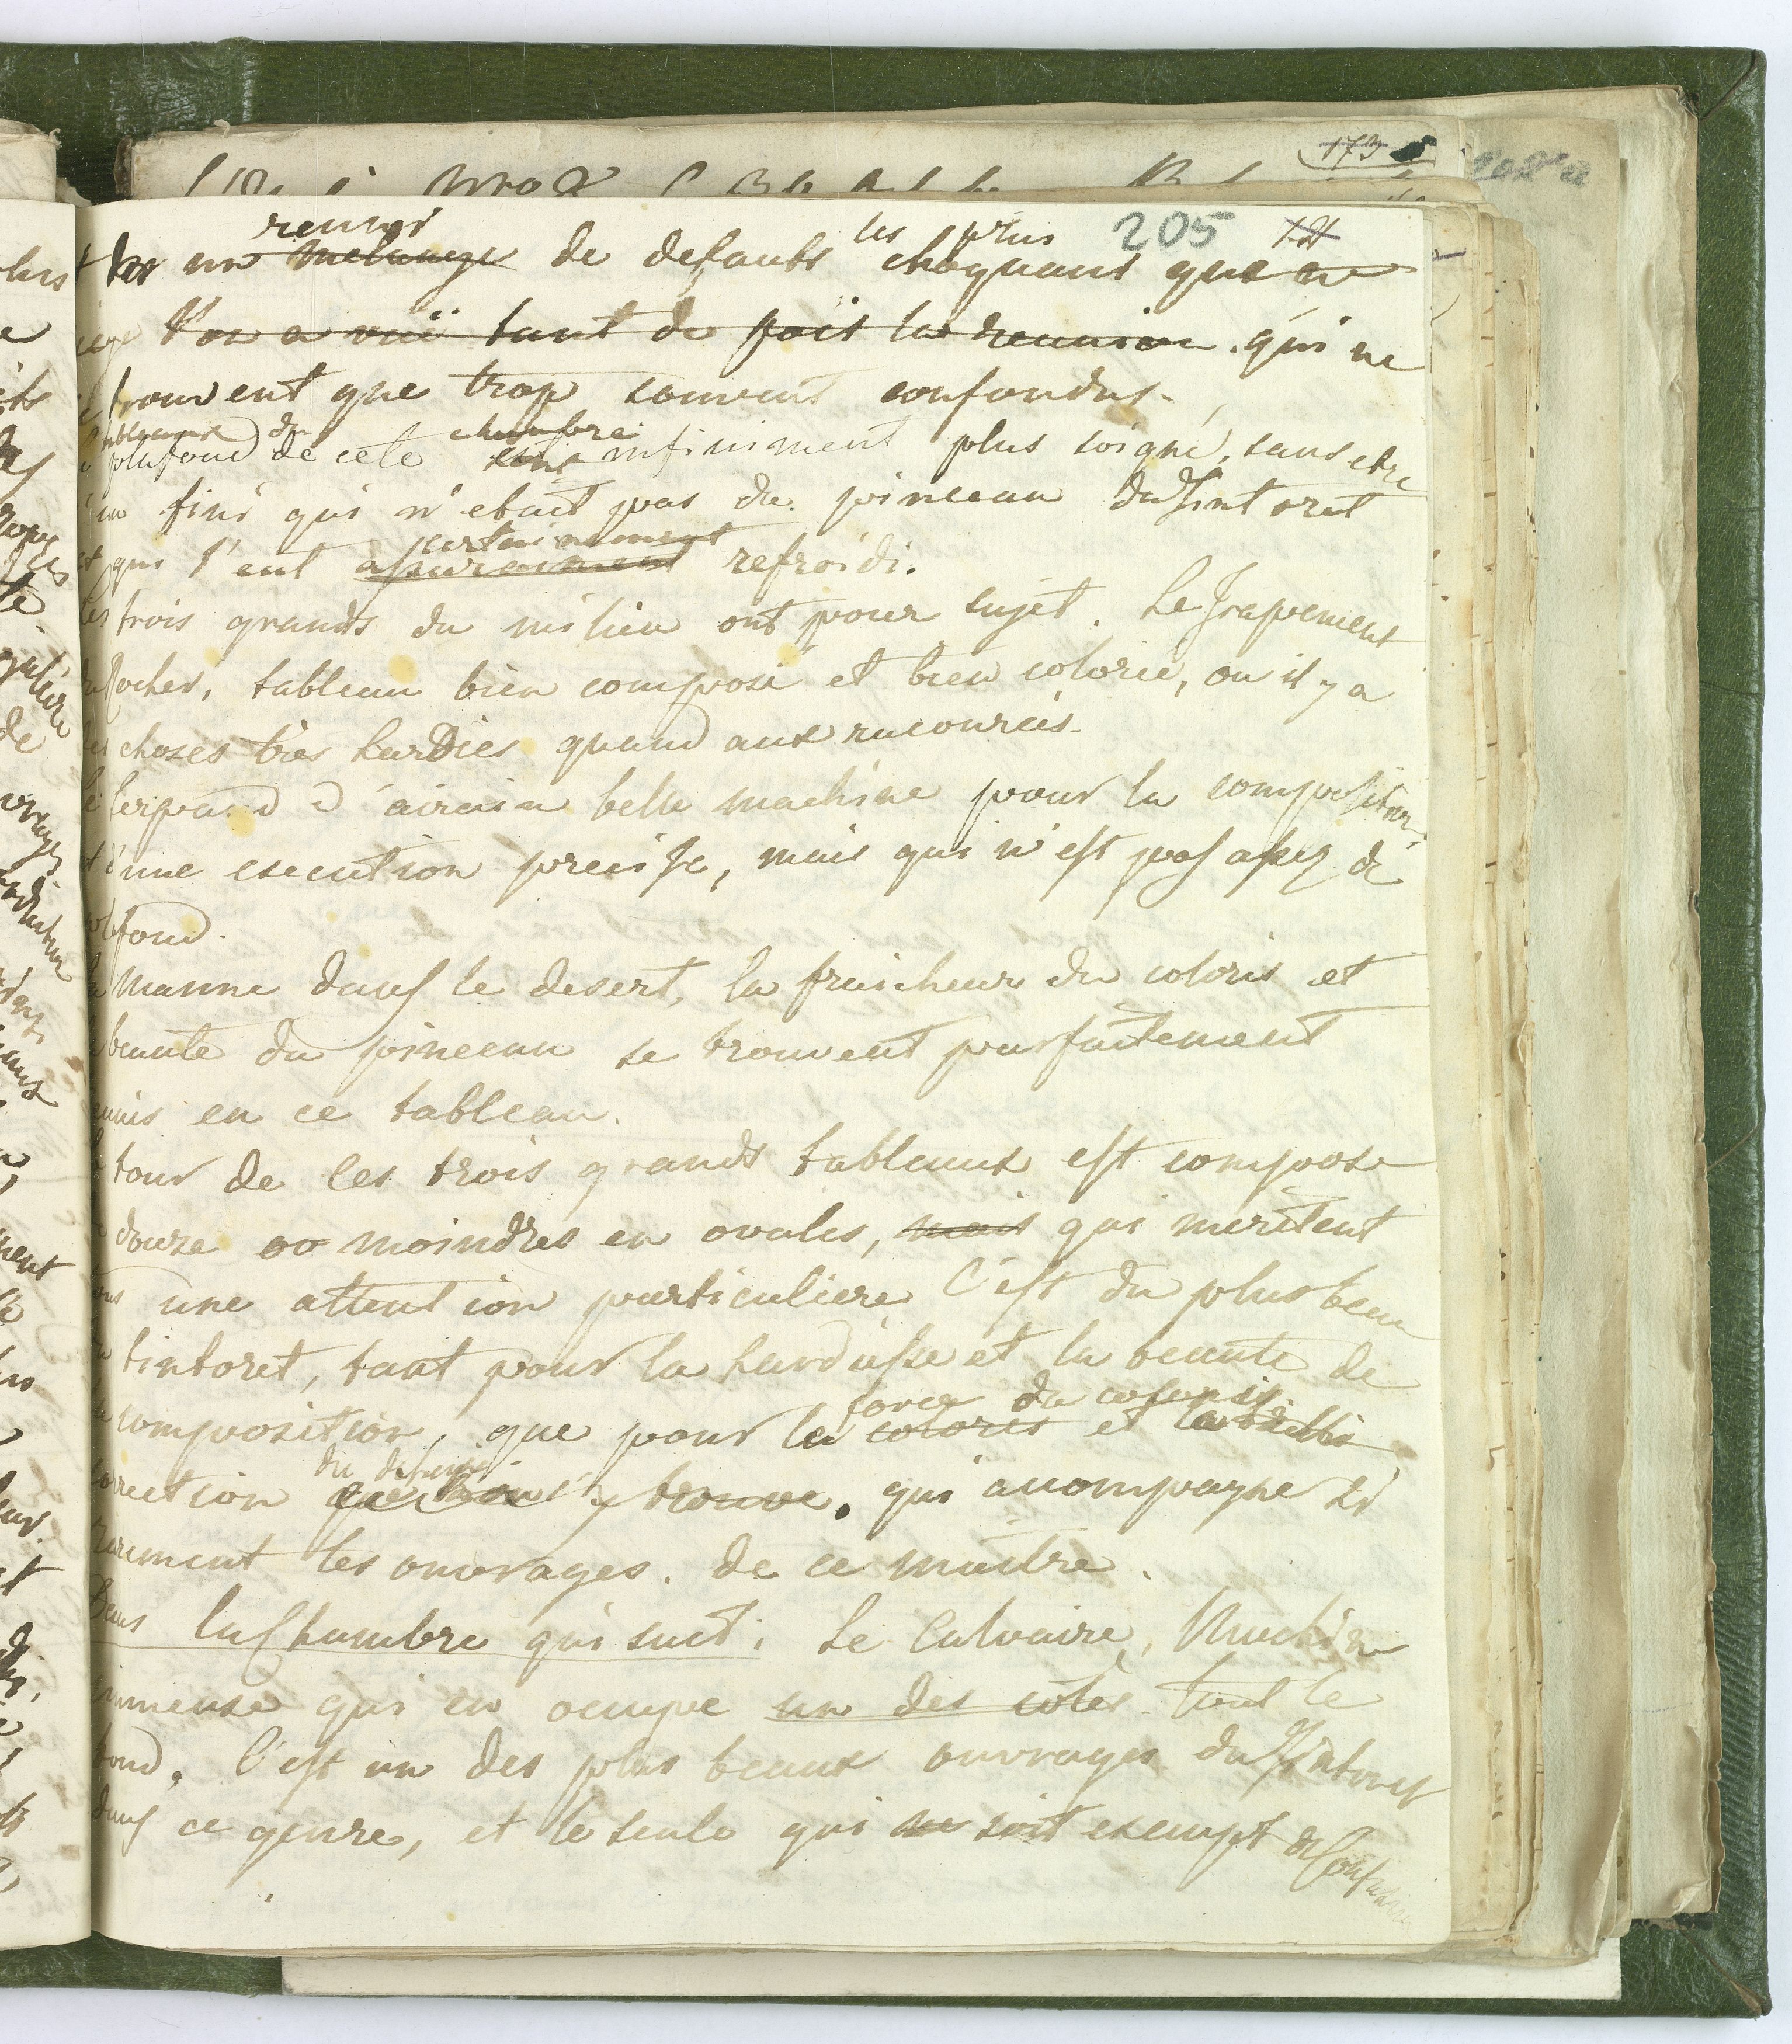 205
reunis les plus
un melange de defauts choquans que
l'on a vuë tant de fois la reunion. qui ne
trouvent que trop souvent confondus.
tableaux du chambre
plafond de cete infiniment plus soigné, sans etre
un fini qui n'etait pas du pinceau du Tintoret
certainement
et qui l'eut assurement refroidi.
les trois grands du milieu ont pour sujet. Le frapement
du Rocher, tableau bien composé et bien colorié, ou il y a
des choses très hardies quand aux racourcis.
le serpend d'airain belle machine pour la composition,
d'une execution precise, mais qui n'est pas assez de
fond.
la manne dans le desert, la fraicheur du coloris et
la beauté du pinceau se trouvent parfaitement
reunis en ce tableau.
le tour de ces trois grands tableaux est composé
de douze moindres en ovales, mais qui meritent
tous une attention particuliere C'est du plus beau
du tintoret, tant pour la hardiesse et la beauté de
force du coloris
la composition, que pour le coloris et la
du dessein
correction que l'on y trouve, qui acompagne si
rarement les ouvrages. de ce maitre.
Dans la Chambre qui suit. Le Calvaire, Machine
immense qui en ocupe un des cotés. tout le
fond. C'est un des plus beaux ouvrages du Tintoret
dans ce genre, et le seule qui soit exempt de Confusion